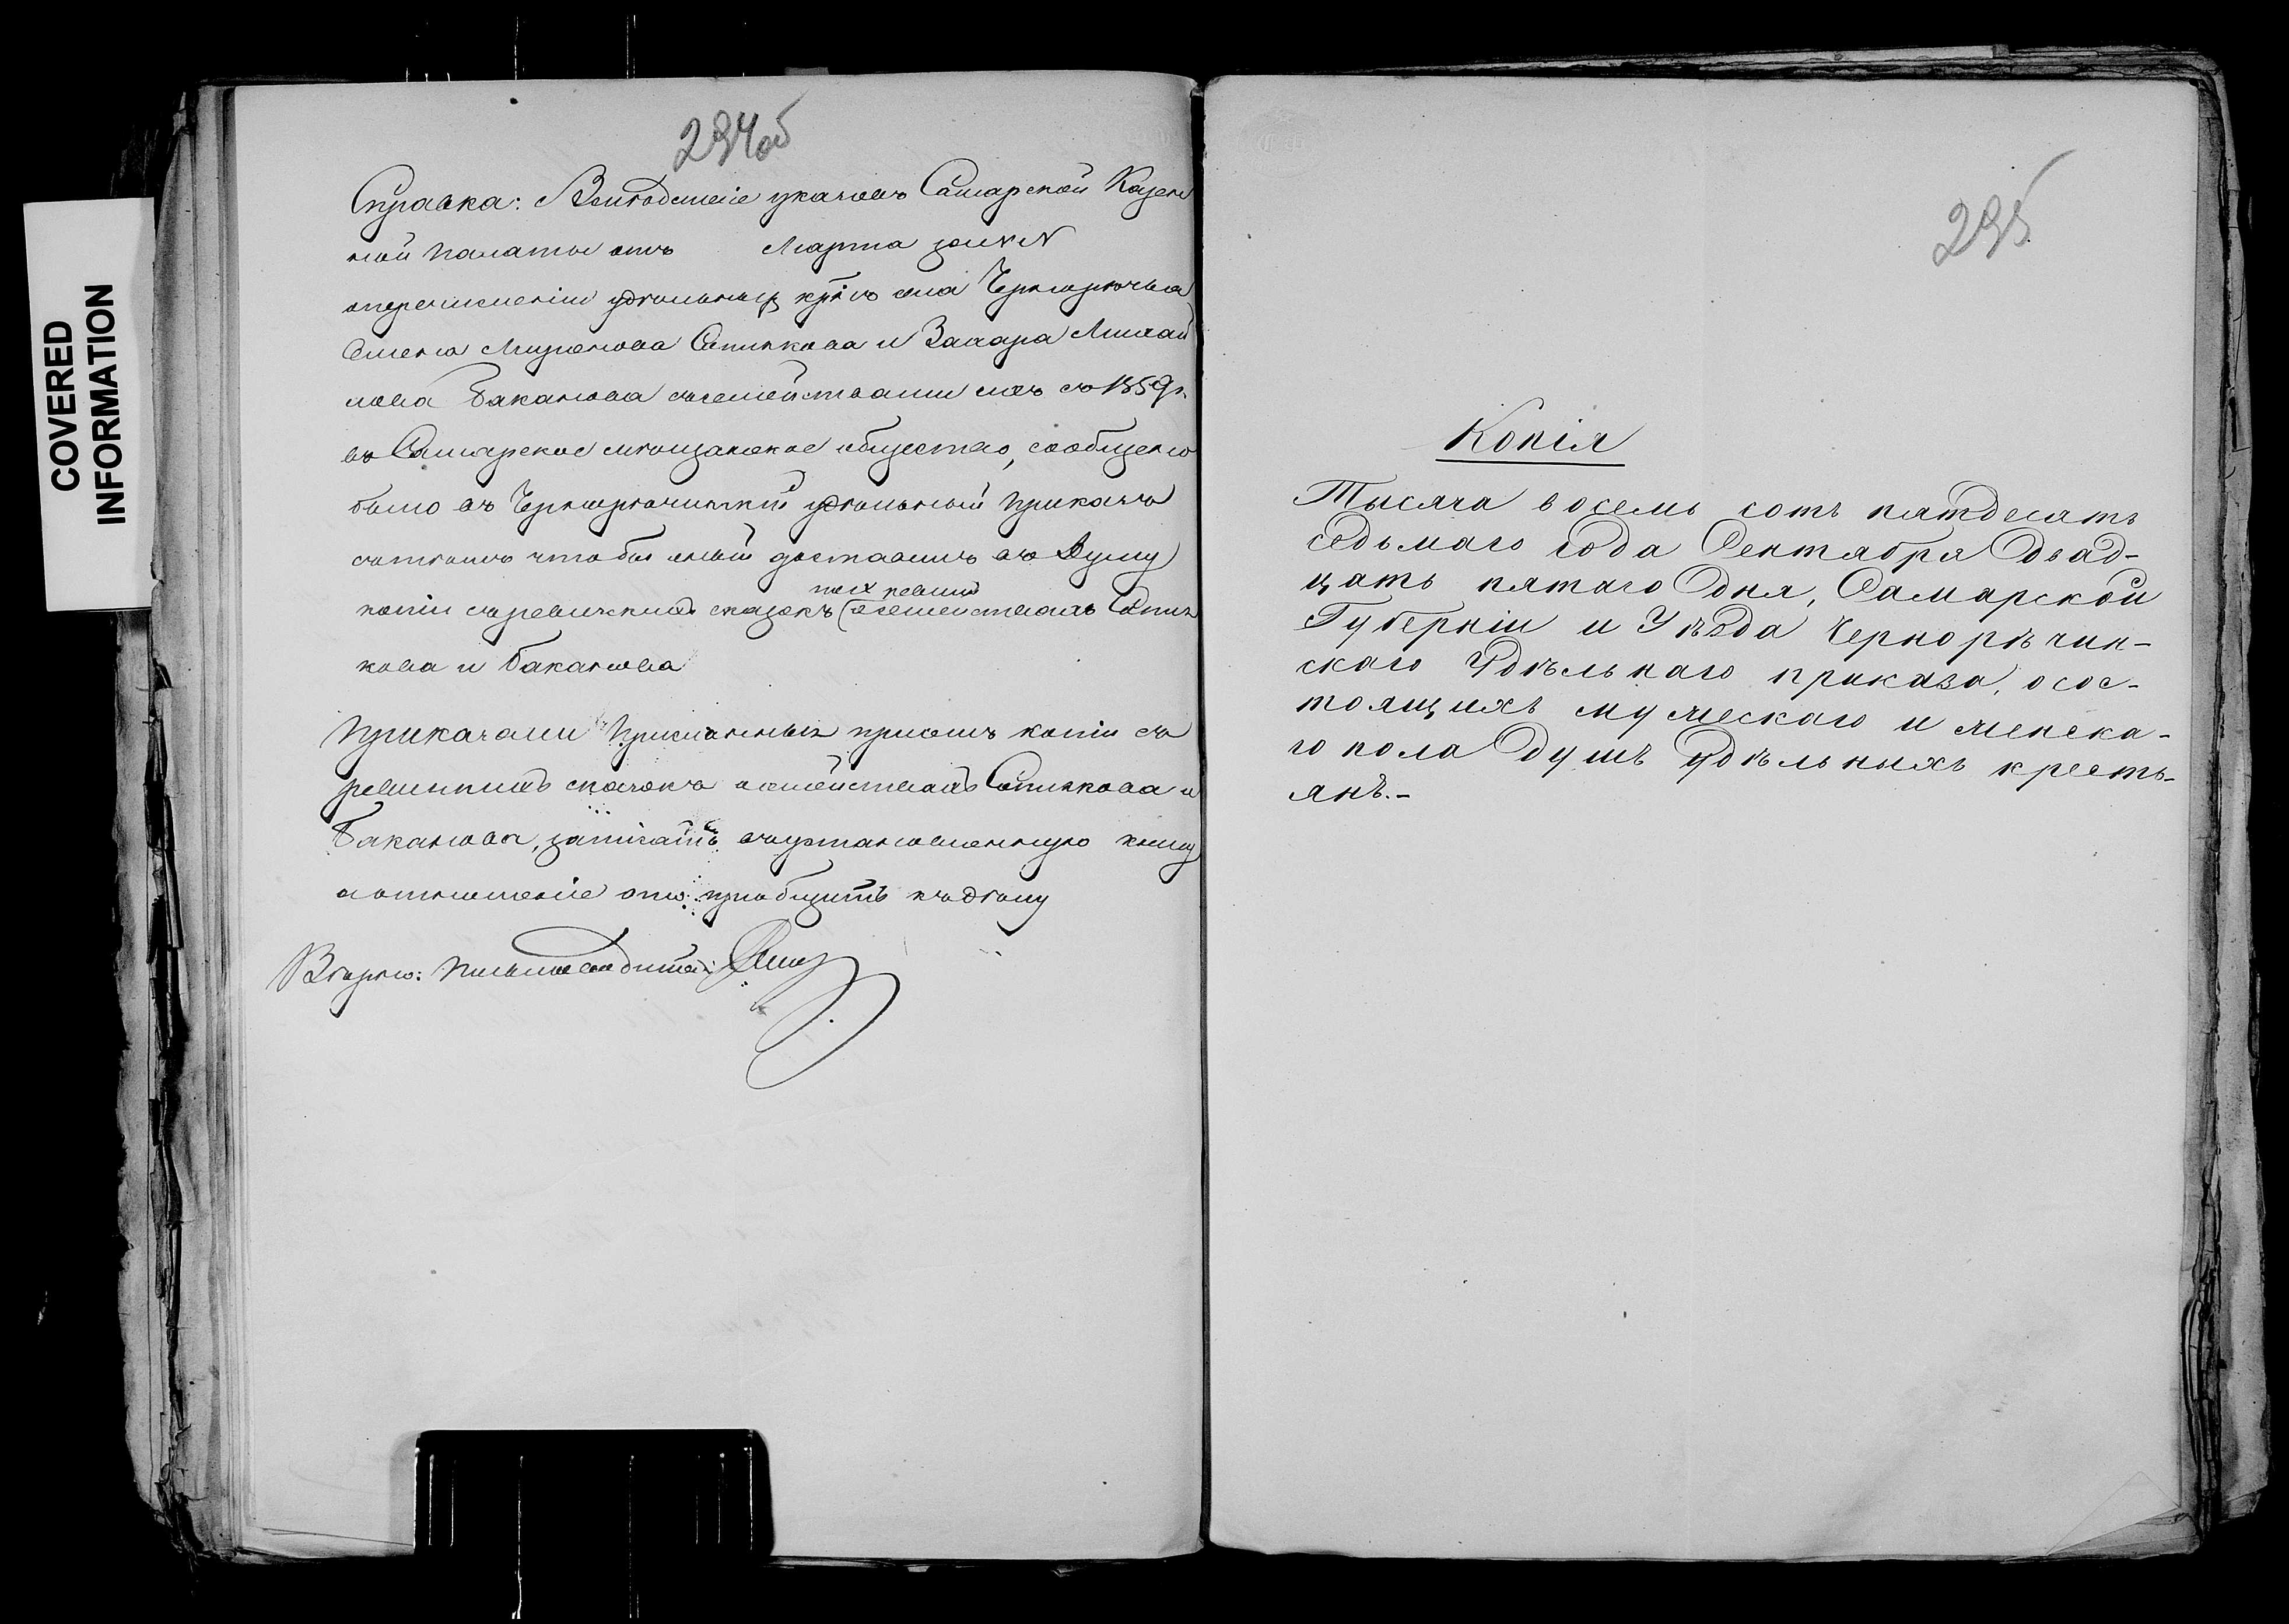 COVERED
INFORMATION
294об
Справка: Вслѣдствіе указовъ Самарской Казен
ной палаты отъ Марта за № №
о перечисленіи удѣльныхъ кр. изъ села Чернорѣчья
Семена Миронова Сотникова и Захара Михай
лова Баканова съ семействами ихъ съ 1859 г.
въ Самарское мѣщанское общество, сообщено
было въ Чернорѣчинскій удѣльный приказъ
съ тѣмъ чтобы оный доставилъ въ Думу
по X ревизіи
копіи съ ревизскихъ сказокъ о семействахъ Сотни
кова и Баканова
Приказали присланныя при семъ копіи съ
ревизскихъ сказокъ о семействахъ Сотникова и
Баканова, записать въ установленную книгу
а отношеніе это пріобщить къ дѣлу
Вѣрно: Письмоводитель
295
Копія
Тысяча восемь сотъ пятдесятъ
седьмаго года Сентября двад-
цать пятаго дня, Самарской
Губерніи и Уѣзда Чернорѣчин-
скаго Удѣльнаго приказа, о сос-
тоящихъ мужескаго и женска-
го пола душъ удѣльныхъ кресть-
янъ.-